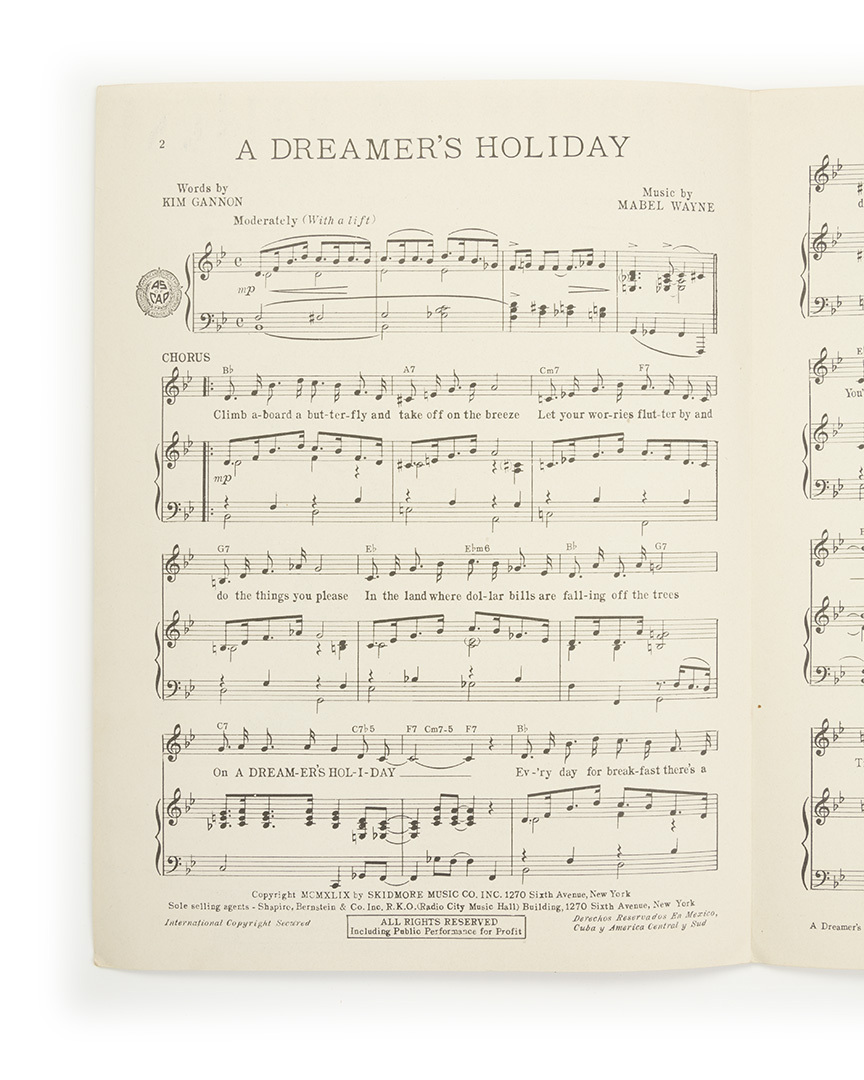 2
A DREAMER'S HOLIDAY
Words by
KIM GANNON
Music by
MABEL WAYNE
Moderately (With a lift)
AS
CAP
mp
CHORUS
B♭ A7 Cm7 F7
Climb a-board a but-ter-fly and take off on the breeze Let your wor-ries flut-ter by and
mp
G7 E♭ E♭m6 B♭ G7
do the things you please In the land where dol-lar bills are fall-ing off the trees
C7 C7♭5 F7 Cm7-5 F7 B♭
On A DREAM-ER'S HOL-I-DAY Ev-'ry day for break-fast there's a
Copyright MCMXLIX by SKIDMORE MUSIC CO. INC. 1270 Sixth Avenue, New York
Sole selling agents - Shapiro, Bernstein & Co. Inc. R.K.O. (Radio City Music Hall) Building, 1270 Sixth Avenue, New York
International Copyright Secured
ALL RIGHTS RESERVED
Including Public Performance for Profit
Derechos Reservados En Mexico,
Cuba y America Central y Sud
You'
A Dreamer's